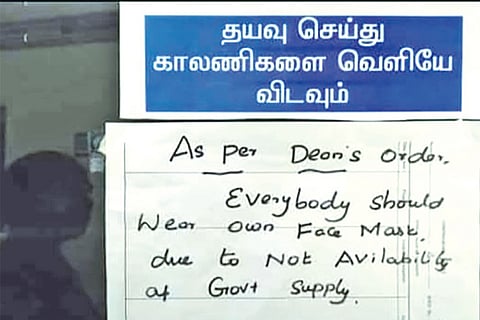 தயவு செய்து
காலணிகளை வெளியே
விடவும்
As per Dean's order.
Everybody should
Wear own Face Mask.
due to Not Avilability
of Govt Supply.